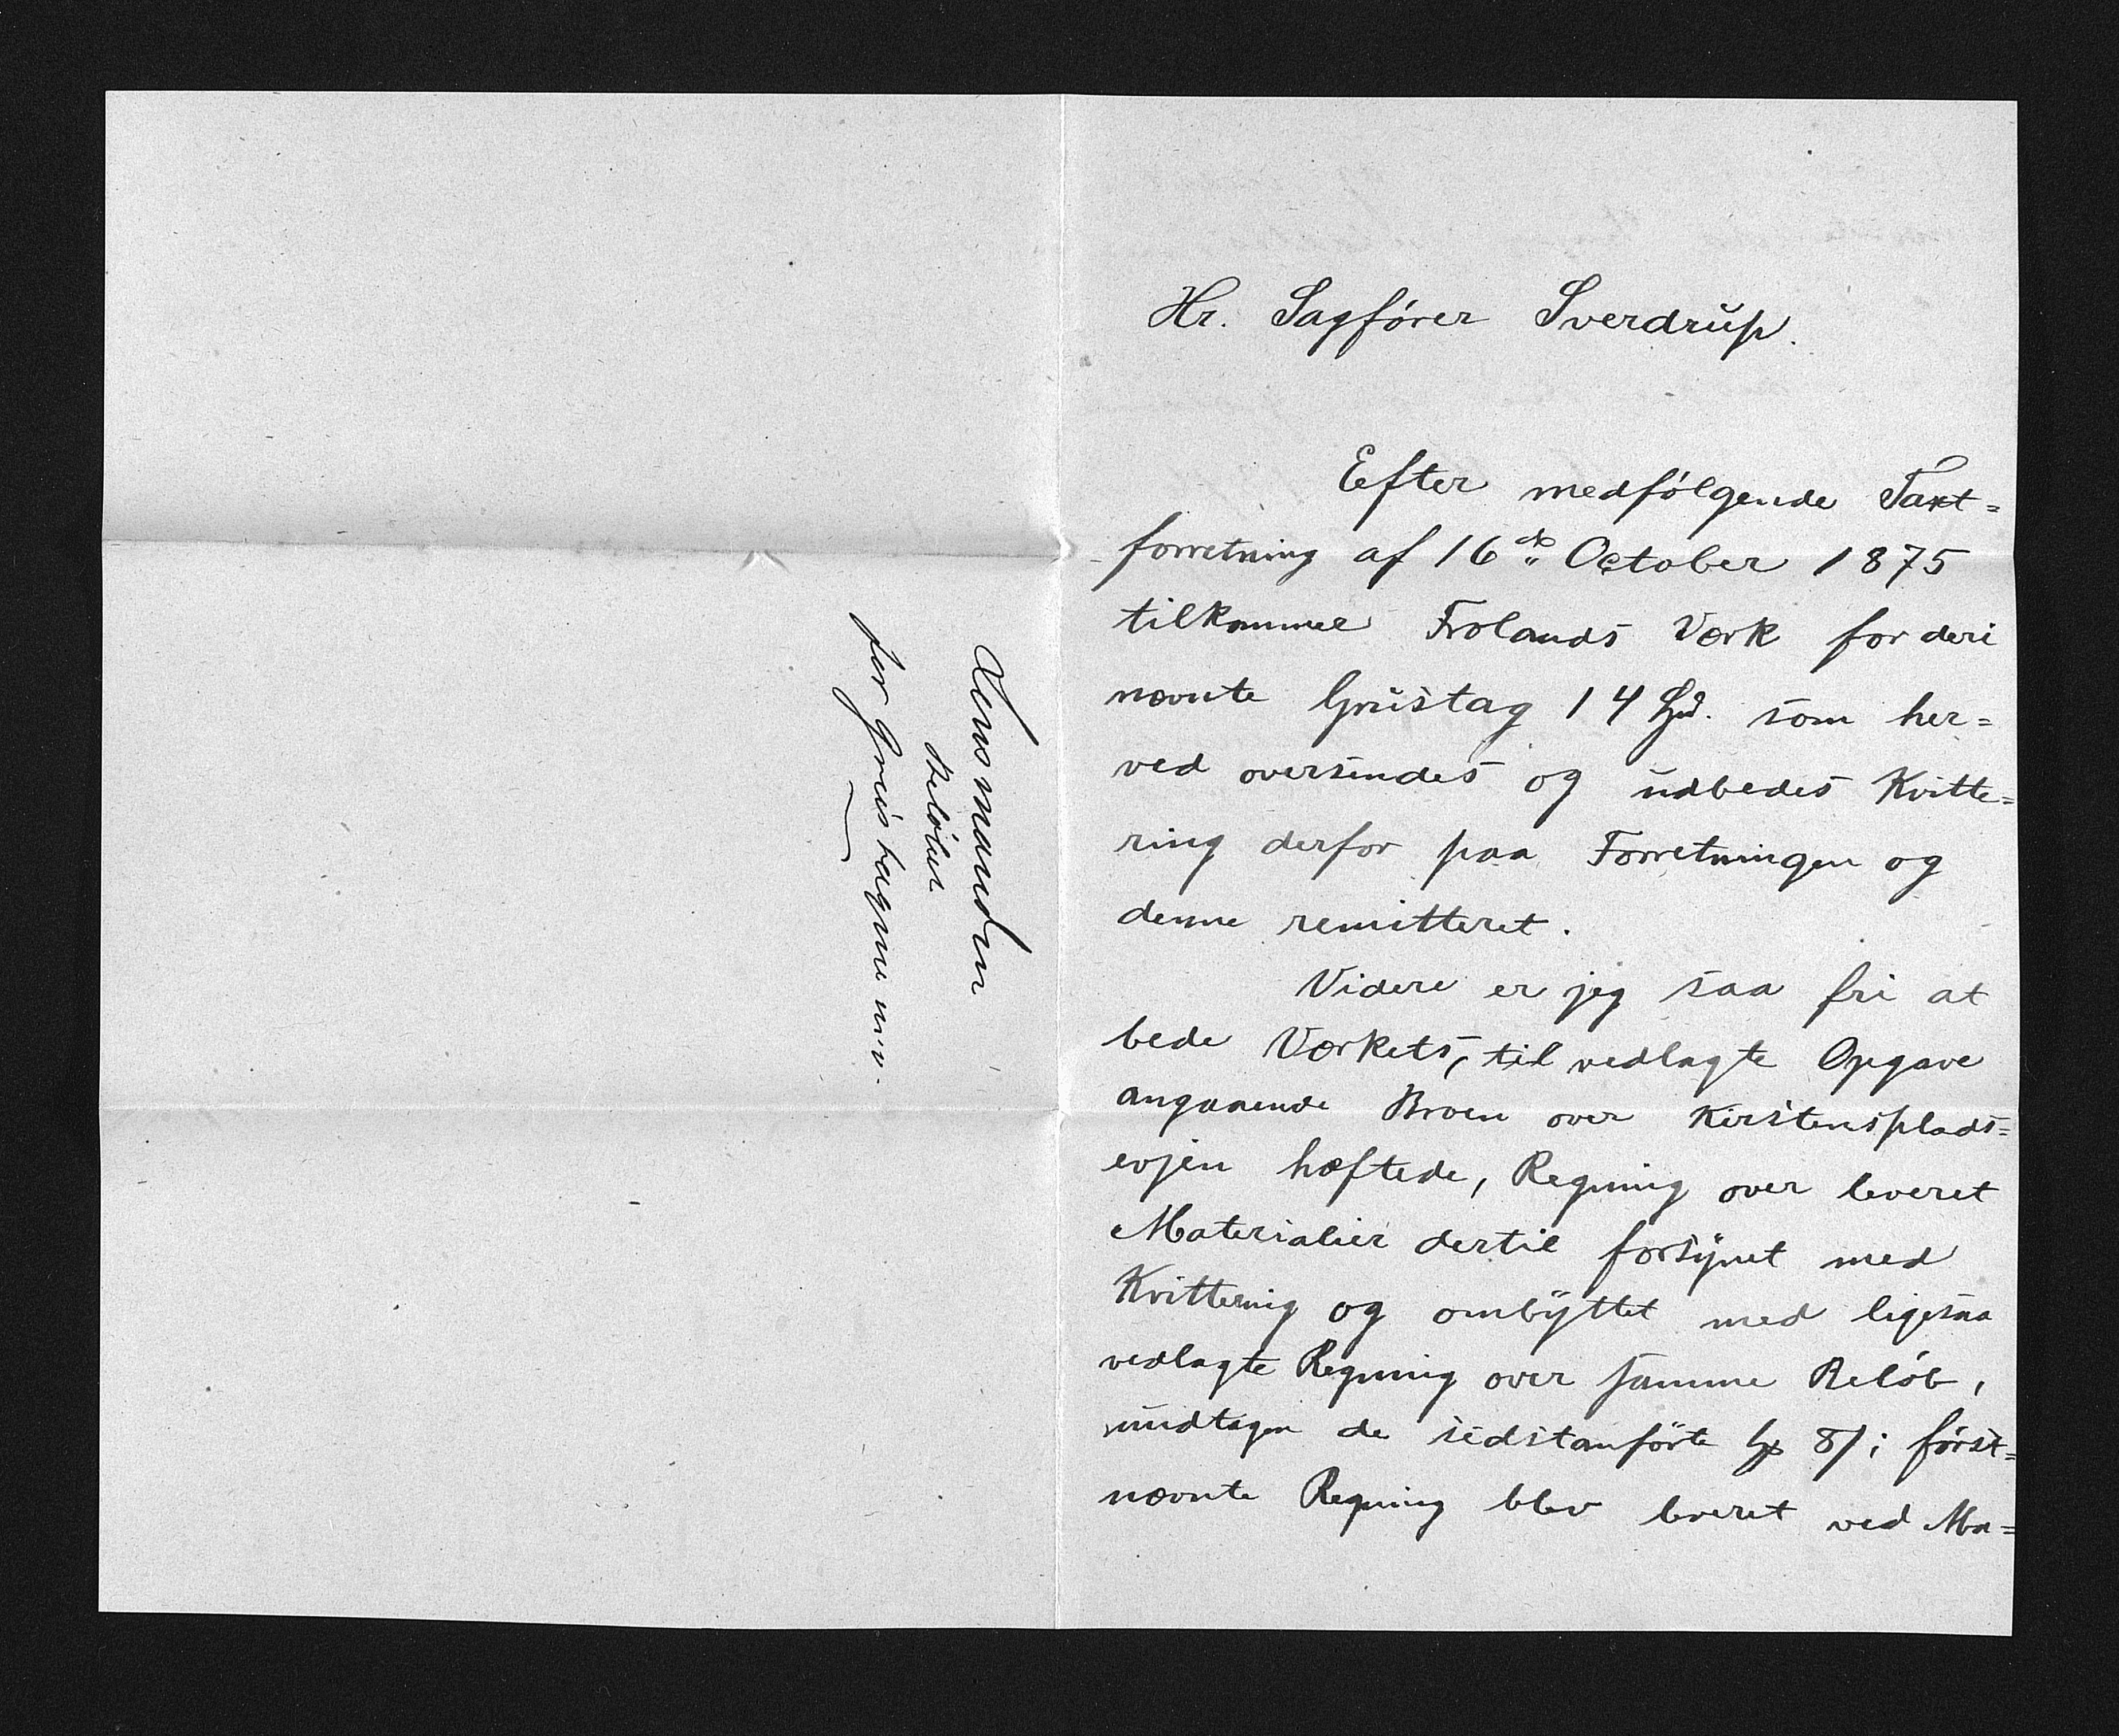 Lensmanden
Beløbet
for Grüstagene m.v.
Hr. Sagfører Sverdrüp.
Efter medfølgende Taxt=
forretning af 16de October 1875
tilkommer Frolands Værk for deri
nævnte Grüstag 14 Spd. som her=
ved oversendes og üdbedes Kvitte=
ring derfor paa Forretningen og
denne remitteret.
Videre er jeg saa fri at
bede Værkets, til vedlagte Opgave
angaaende Broen over Kirstensplads=
evjen hæftede, Regning over leveret
Materialier dertil forsÿnet med
Kvittering og ombÿttet med ligesaa
vedlagte Regning over samme Beløb,
undtagen de sidstanførte 8/ i først=
nævnte Regning blev leveret ved Ma=